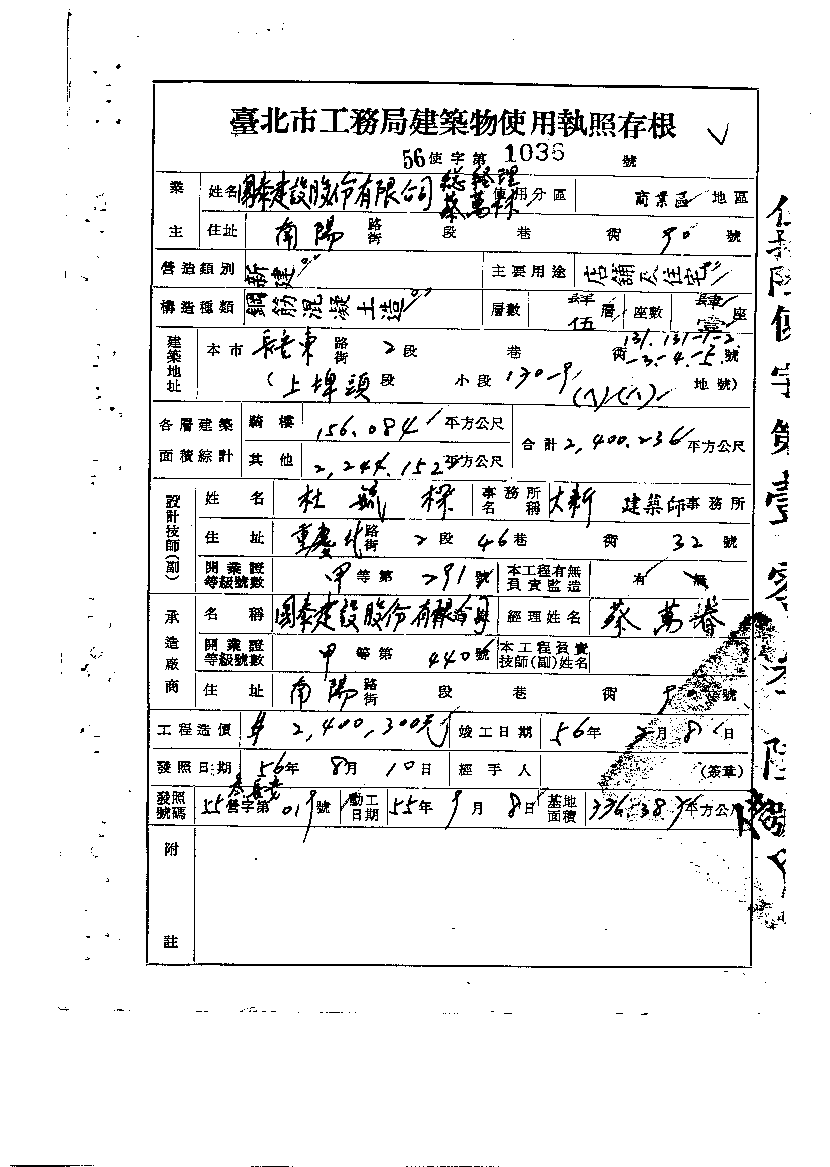 臺北市工務局建築物使用執照存根
56使字第1036號
業主 姓名 國泰建設股份有限公司 總經理 蔡萬林 使用分區 商業區 地區
住址 南陽 路街 段 巷 衖 90 號
營造類別 新建 主要用途 店舖及住宅
構造種類 鋼筋混凝土造 層數 肆 伍 層 座數 肆 壹 座
建築地址 本市 長安東 路街 2段 巷 衖 131.131-1-2-3-4-5號
(上埤頭段 小段 130-9 地號)
各層建築面積綜計 騎樓 156.084平方公尺 合計2,400.236平方公尺
其他 2,244.152平方公尺
設計技師(副) 姓名 杜毓樑 事務所名稱 大新 建築師事務所
住址 重慶北 路街 2段 46巷 衖 32號
開業證等級號數 甲等第291號 本工程有無負責監造 有 無
承造廠商 名稱 國泰建設股份有限公司 經理姓名 蔡萬春
開業證等級號數 甲等第440號 本工程負責技師(副)姓名
住址 南陽 路街 段 巷 衖 90號
工程造價 2,400,300元 竣工日期 56年 月8日
發照日期 56年8月10日 經手人 (簽章)
發照號碼 55營字第019號 動工日期 55年9月8日 基地面積 336.38平方公尺
附註
使字第壹零叁陸號